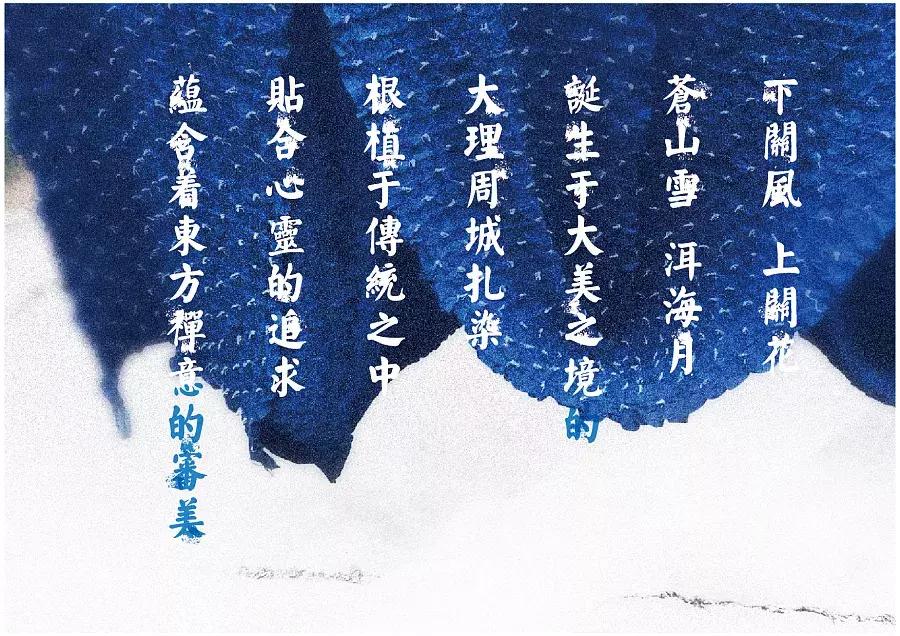 下關風 上關花
蒼山雪 洱海月
誕生于大美之境的
大理周城扎染
根植于傳統之中
貼合心靈的追求
蘊含着東方禪意的審美